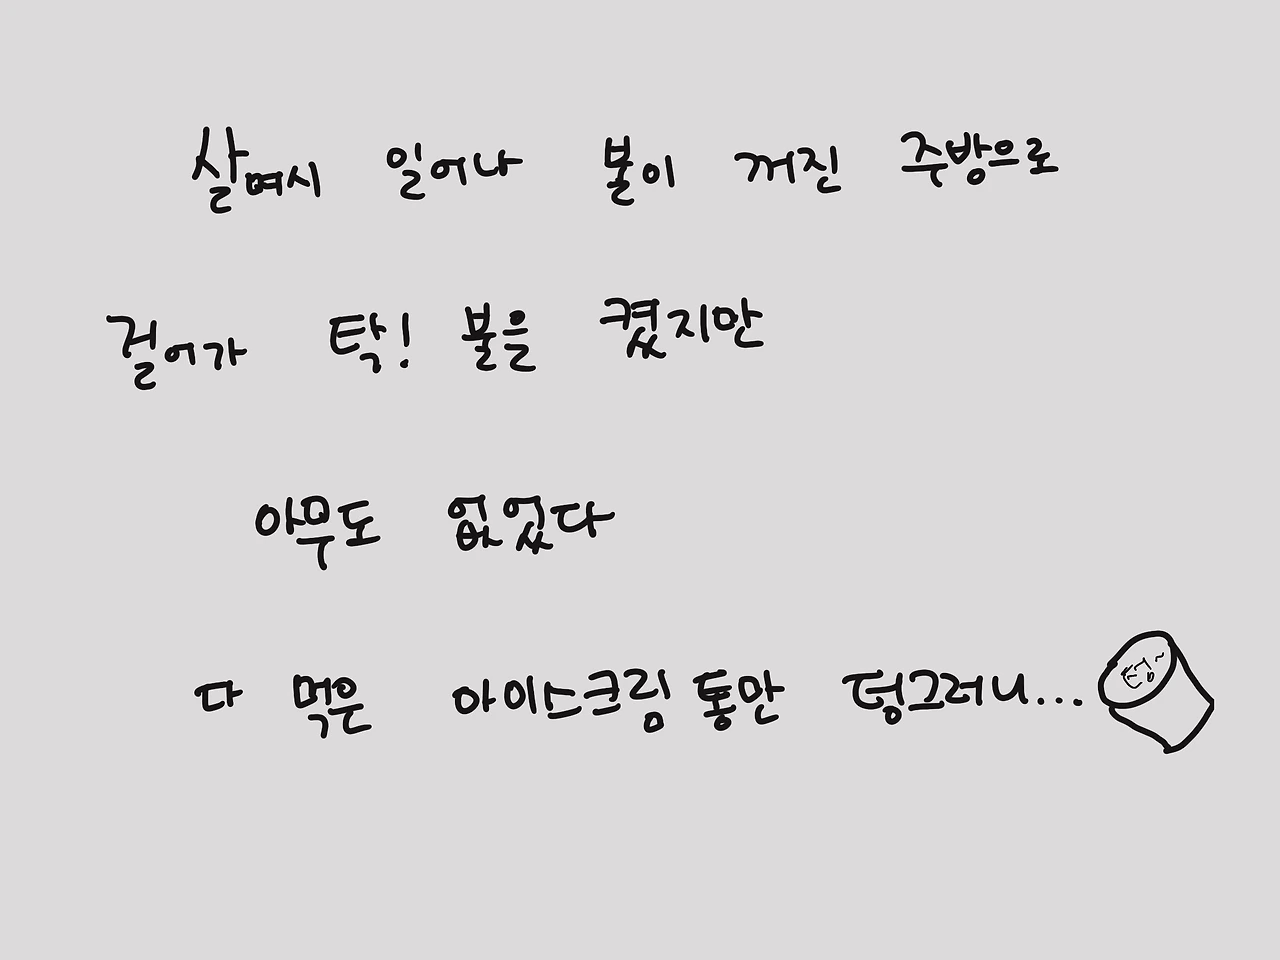 살며시 일어나 불이 꺼진 주방으로
걸어가 탁! 불을 켰지만
아무도 없었다
다 먹은 아이스크림 통만 덩그러니...
텅~